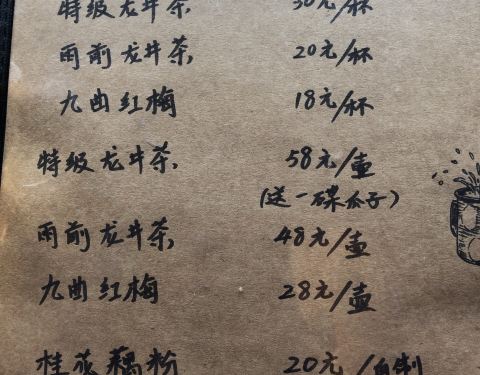 特级龙井茶 30元/杯
雨前龙井茶 20元/杯
九曲红梅 18元/杯
特级龙井茶 58元/壶
(送一碟瓜子)
雨前龙井茶 48元/壶
九曲红梅 28元/壶
桂花藕粉 20元/自制